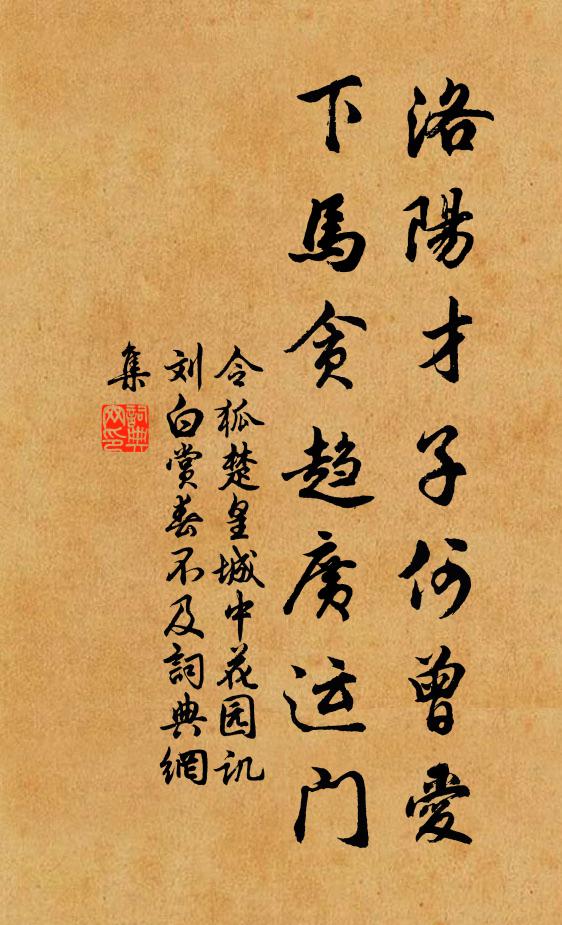 洛陽才子何曾愛
下馬貪趨廣运门
令狐楚皇城中花园讥
刘白赏春不及詞典網
集
詞典網印